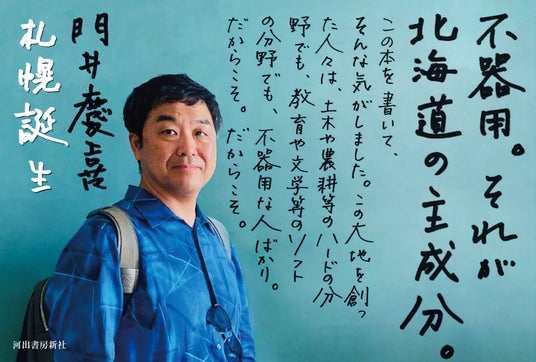 不器用。それが
北海道の主成分。
この本を書いて、
そんな気がしました。この大地を創っ
た人々は、土木や農耕等のハードの分
野でも、教育や文学等のソフト
の分野でも、不器用な人ばかり。
だからこそ。だからこそ。
門井慶喜
札幌誕生
河出書房新社